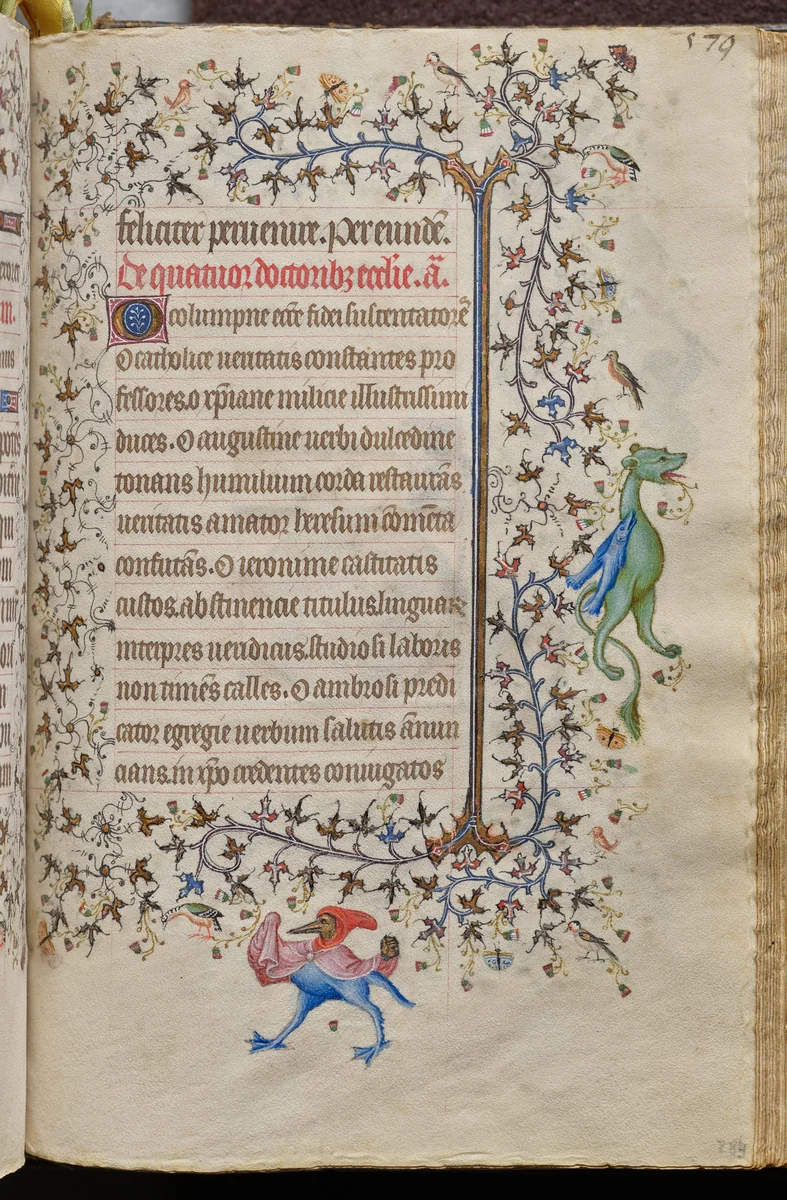 579
feliciter peruenire. Per eundē.
De quatuor doctoribꝫ ecclīe. ā.
O columpne ecc̄e fidei sustentatorē
O catholice ueritatis constantes pro
fessores. o xp̄iane milicie illustrissimi
duces. O augustine uerbi dulcedine
tonans humilium corda restaurās
ueritatis amator heresum cōmēta
confutās. O ieronime castitatis
custos. abstinencie titulus. linguaꝝ
interpres ueridicus. studiosi laboris
non timēs calles. O ambrosi predi
cator egregie uerbum salutis ānun
cians. in xp̄o credentes coniugatos
284